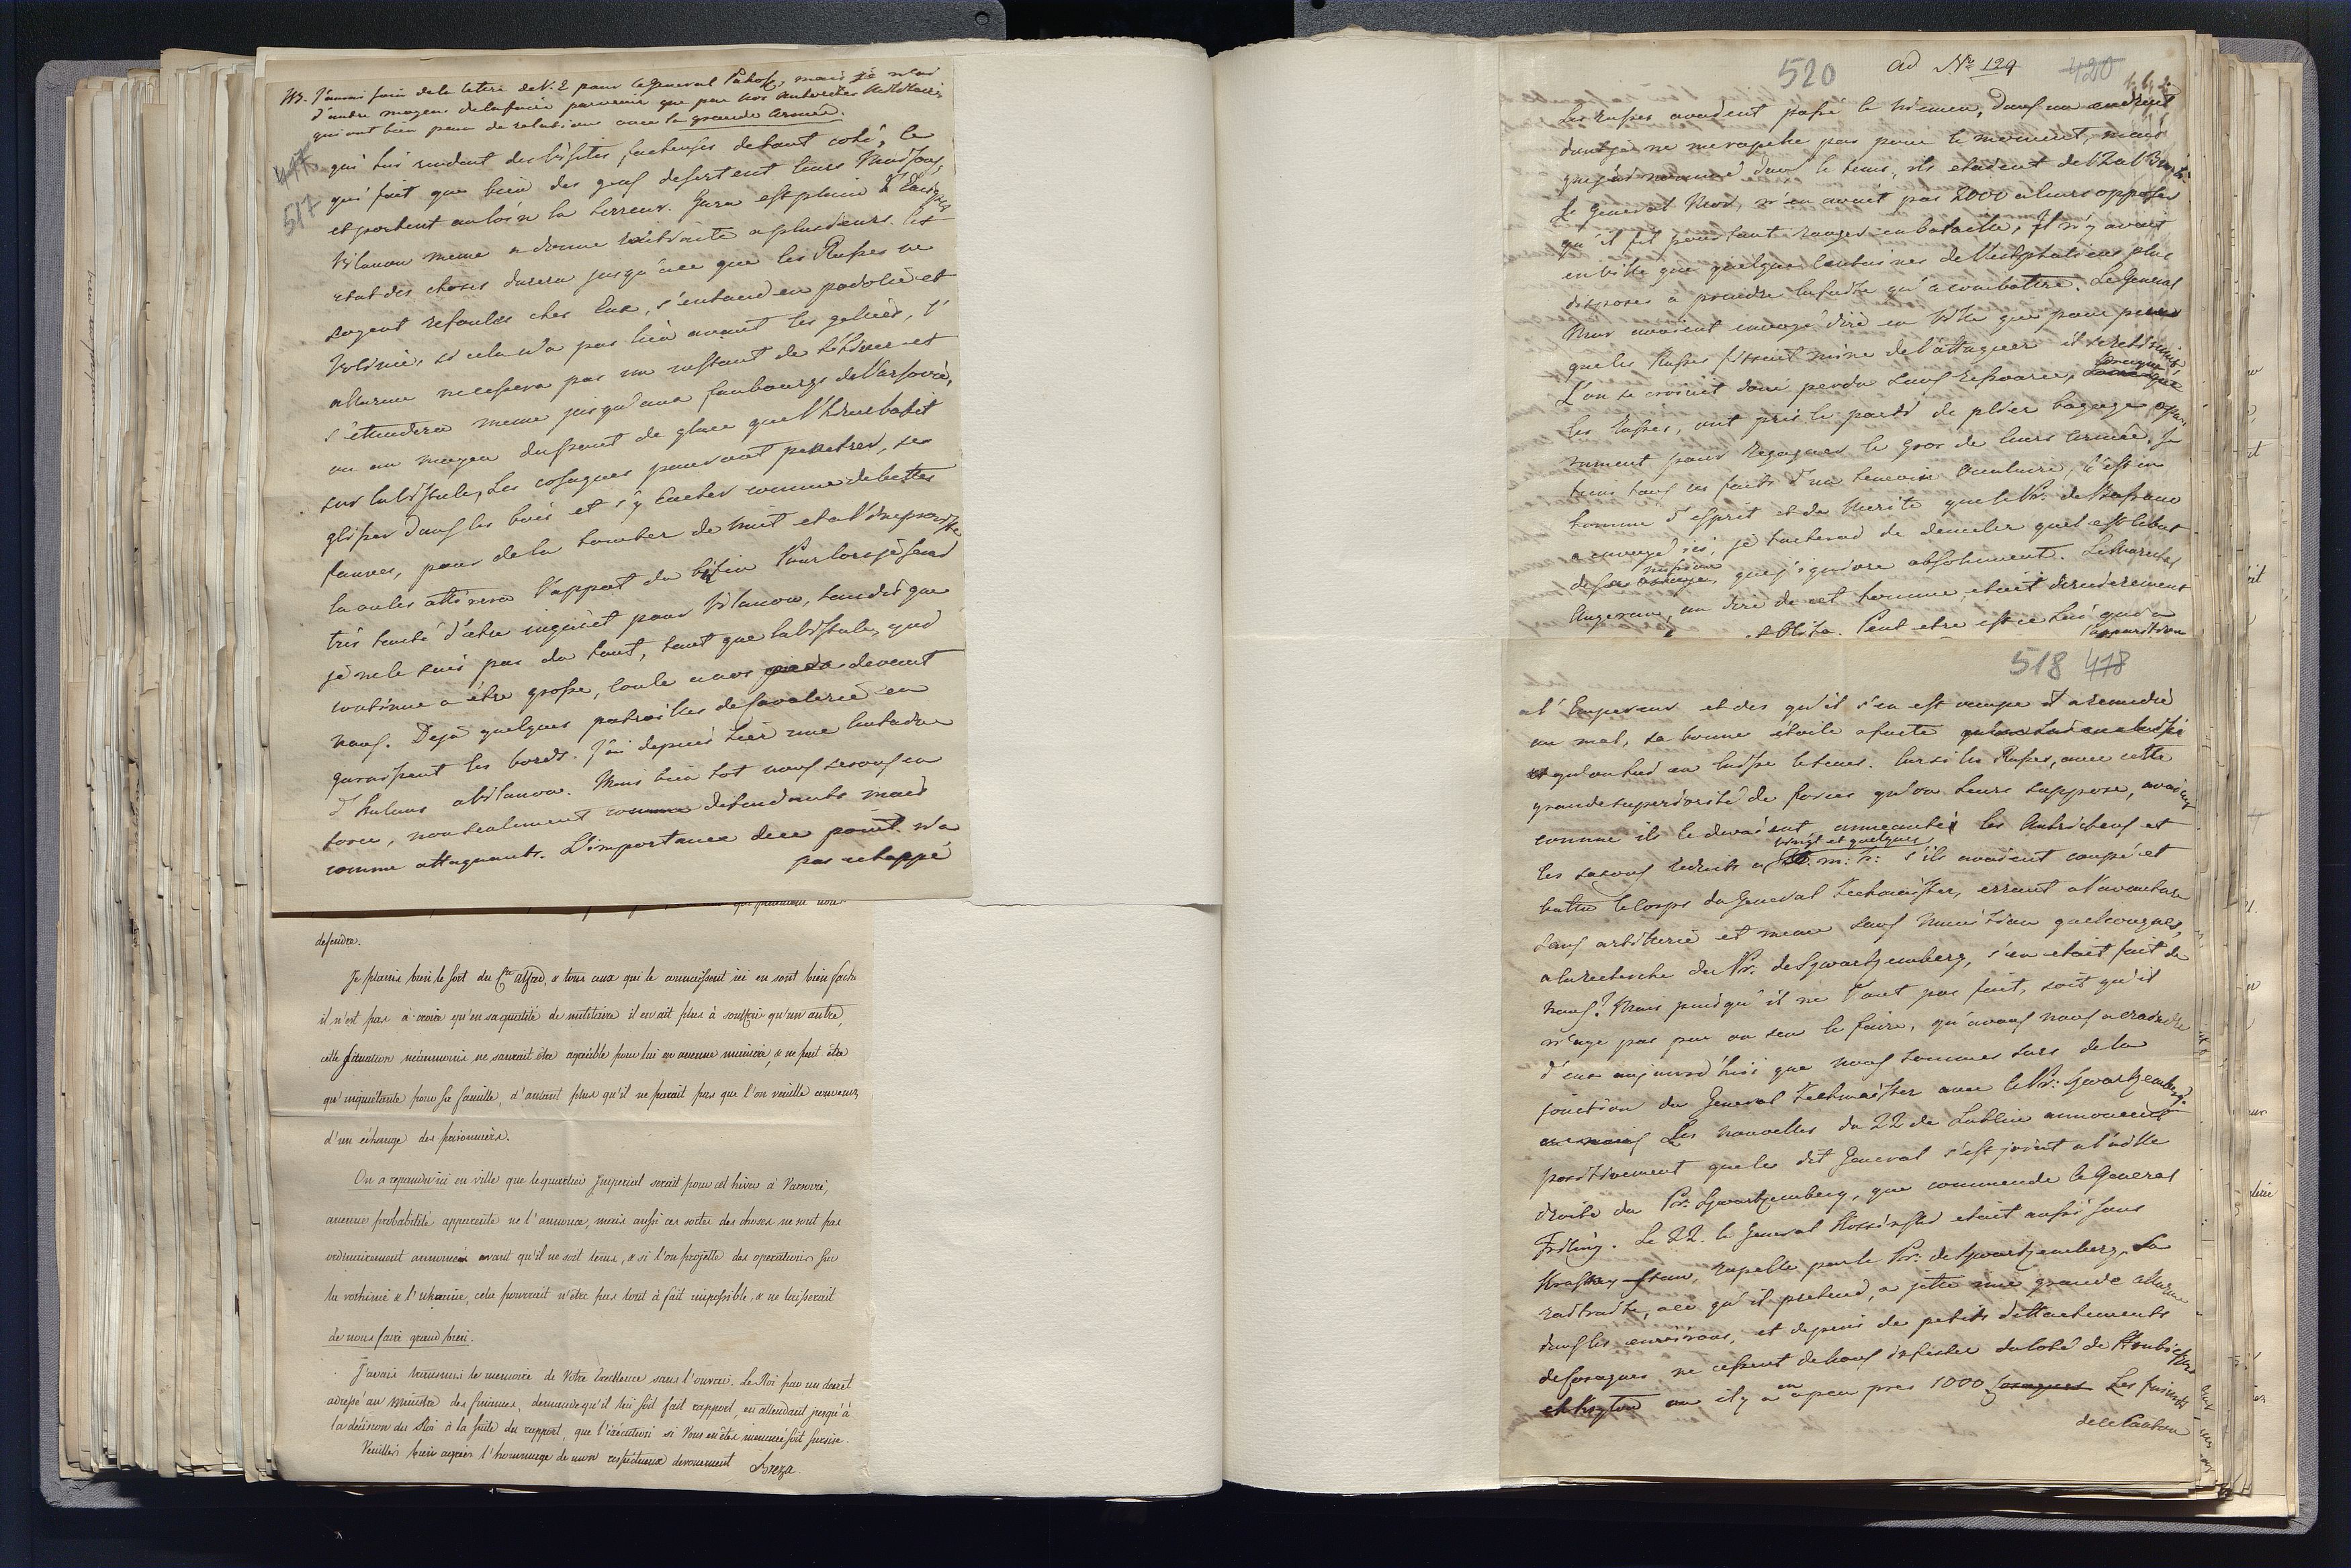 NB. J'aurai soin de la lettre de V. E pour le general Pakosz, mais je n'ai
d'autre moyen de la faire parvenir que par nos Autorités Militaires
qui ont bien peu de relations avec la grande Armée.
477
517
qui lui rendent des visites facheuses de tout coté, ce
qui fait que bien des gens desertent leurs Maisons,
et portent au loin la terreur. Gura est pleine d'
Vilanov meme a donné retraite a plusieurs. Cet
etat des choses durera jusqu'à ce que les Russes ne
soyent refoulés chez Eux, s'entend en podolie et
Volinie, si cela n'a pas lieu avant les gelées, l'
allarme ne cessera pas un instant de l'hiver et
s'etendera meme jusqu'aux faubourgs de Varsovie,
ou au moyen du pont de glace que l'hiver batit
sur la Vistule, Les cosaques pouront penetrer, se
glisser dans les bois et s'y cacher comme de bettes
fauves, pour de la tomber de nuit et a l'improviste
la ou les attirera l'appat du butin Pour lors je serai
très tenté d'etre inquiet pour Vilanov, tandis que
je ne le suis pas du tout, tant que la Vistule, qui
continue a être grosse, coule a nos pieds devant
nous. Dejà quelques patrouilles de Cavalerie en
garnissent les bords. J'ai depuis hier une
d'hulans a Vilanov. Mais bien tot nous serons en
force, non sealement comme defendants mais
comme attaquants. L'importance de ce point n'a
pas echappé
defendre.
Je plains bien le sort du Cte Alfred, & tous ceux qui le connoissent ici en sont bien fachés
il n'est pas à croire qu'en sa qualité de militaire il en ait plus à souffrir qu'un autre,
cette situation néanmoins ne saurait être agréable pour lui en aucune manière, & ne peut être
qu'inquiétante pour sa famille, d'autant plus qu'il ne parait pas que l'on veuille convenir
d'un échange des prisonniers.
On a repandu ici en ville que le quartier Imperial serait pour cet hiver à Varsovie,
aucune probabilité apparente ne l'annonce, mais aussi ces sortes des choses ne sont pas
ordinairement annoncées avant qu'il ne soit tems, & si l'on projette des operations sur
la vochinie & l'ukraine, cela pourrait n'être pas tout à fait impossible, & ne laisserait
de nous faire grand bien.
J'avais transmis le memoire de Votre Excellence sans l'ouvrir. Le Roi par un decret
adressé au ministre des finances, demande qu'il lui soit fait rapport, en attendant jusqu'à
la décision du Roi à la suite du rapport, que l'exécution si Vous en êtes menacé soit sursise.
Veuillés bien agréer l'hommage de mon respectueux devouement Breza.
520 ad No 129 420
Les Russes avaient passé le Niemen, dans un endroit
dont je ne me rapelle pas pour le moment, mais
que j'ai nommé dans le tems, ils etaient
Le general n'en avait pas 2000 a leurs opposer
qu'il fit pourtant ranger en bataille, Il n'y avoit
en ville que quelques centaines de Vestphaliens plus
disposés a prendre la fuite qu'a combattre. Le General
avoient envoyé dire en ville que pour peu
que les Russes fissent mine de l'attaquer il
L'on se croioit donc perdu sans ressource,
les Russes, ont pris le parti de plier bagage
pour regagner le gros de leurs Armée. Je
tiens tous ces faits d'un temoin oculaire, C'est un
homme d'esprit et de merite que le Pr. de Bassano
a envoyé ici, je tacherai de demeler quel est le but
de sa mission, que j'ignore absolument. Le Marechal
Augereau, au dire de cet homme etait dernierement
Peut etre est ce lui qui a
l'apparition
518 478
a l' Empereur et des qu'il s'en est occupé il a remedié
au mal, sa bonne étoile a faite
qu'on lui en laisse le tems. Car si les Russes, avec cette
grande superiorité de forces qu'on leurs suppose, avoient
comme ils le devoient anneantis les Autrichens et
les saxons reduits a vingt et quelques m: h: s'ils avoient coupé et
battu le corps du General Kechmeister, errant a l'avanture
sans artillerie et meme sans munition quelconques,
a la recherche du Pr. de Szwartzemberg, s'en etait fait de
nous? Mais puisqu'il ne l'ont pas fait, soit qu'il
n'aye pas pu ou seu le faire, qu'avons nous a craindre
d'eux aujourd'hui que nous sommes surs de la
jonction du General Kechmeister avec le Pr: Szwartzemberg.
Les nouvelles du 22 de Lublin annoncent
positivement que le dit General s'est joint a l'aille
droite du Pr. Szwartzemberg, que commende le General
Friling. Le 22. le General Kossinski etait aussi sous
Krasny-Staw, rapellé par le Pr: de Szwartzemberg. Sa
raitraite, a ce qu'il pretend, a jetté une grande allarme
dans les environs, et depuis de petits dettachements
de Cosaques ne cessent de nous infester du coté de Hrubieszow
et Krylow ou il y a en a peu pres 1000 Cosaques Les fuiards
de ce Canton